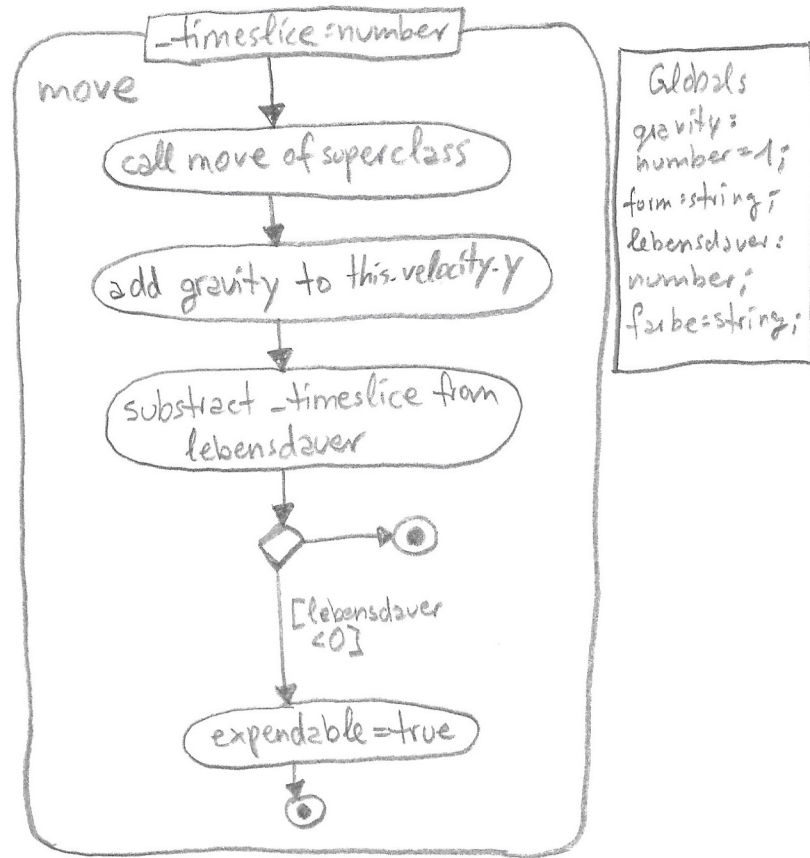 _timeslice:number
move
call move of superclass
add gravity to this.velocity.y
substract _timeslice from
lebensdauer
[lebensdauer
<0]
expendable=true
Globals
gravity:
number=1;
form:string;
lebensdauer:
number;
farbe:string;